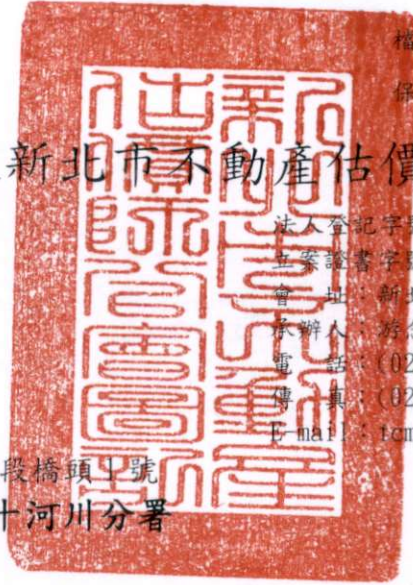 檔
保
新北市不動產估價
法人登記字
立案證書字
會 址：新北
承辦人：游
電 話：(02
傳 真：(02
E-mail：tcm
段橋頭1號
十河川分署
新北市不動產
估價師公會圖記